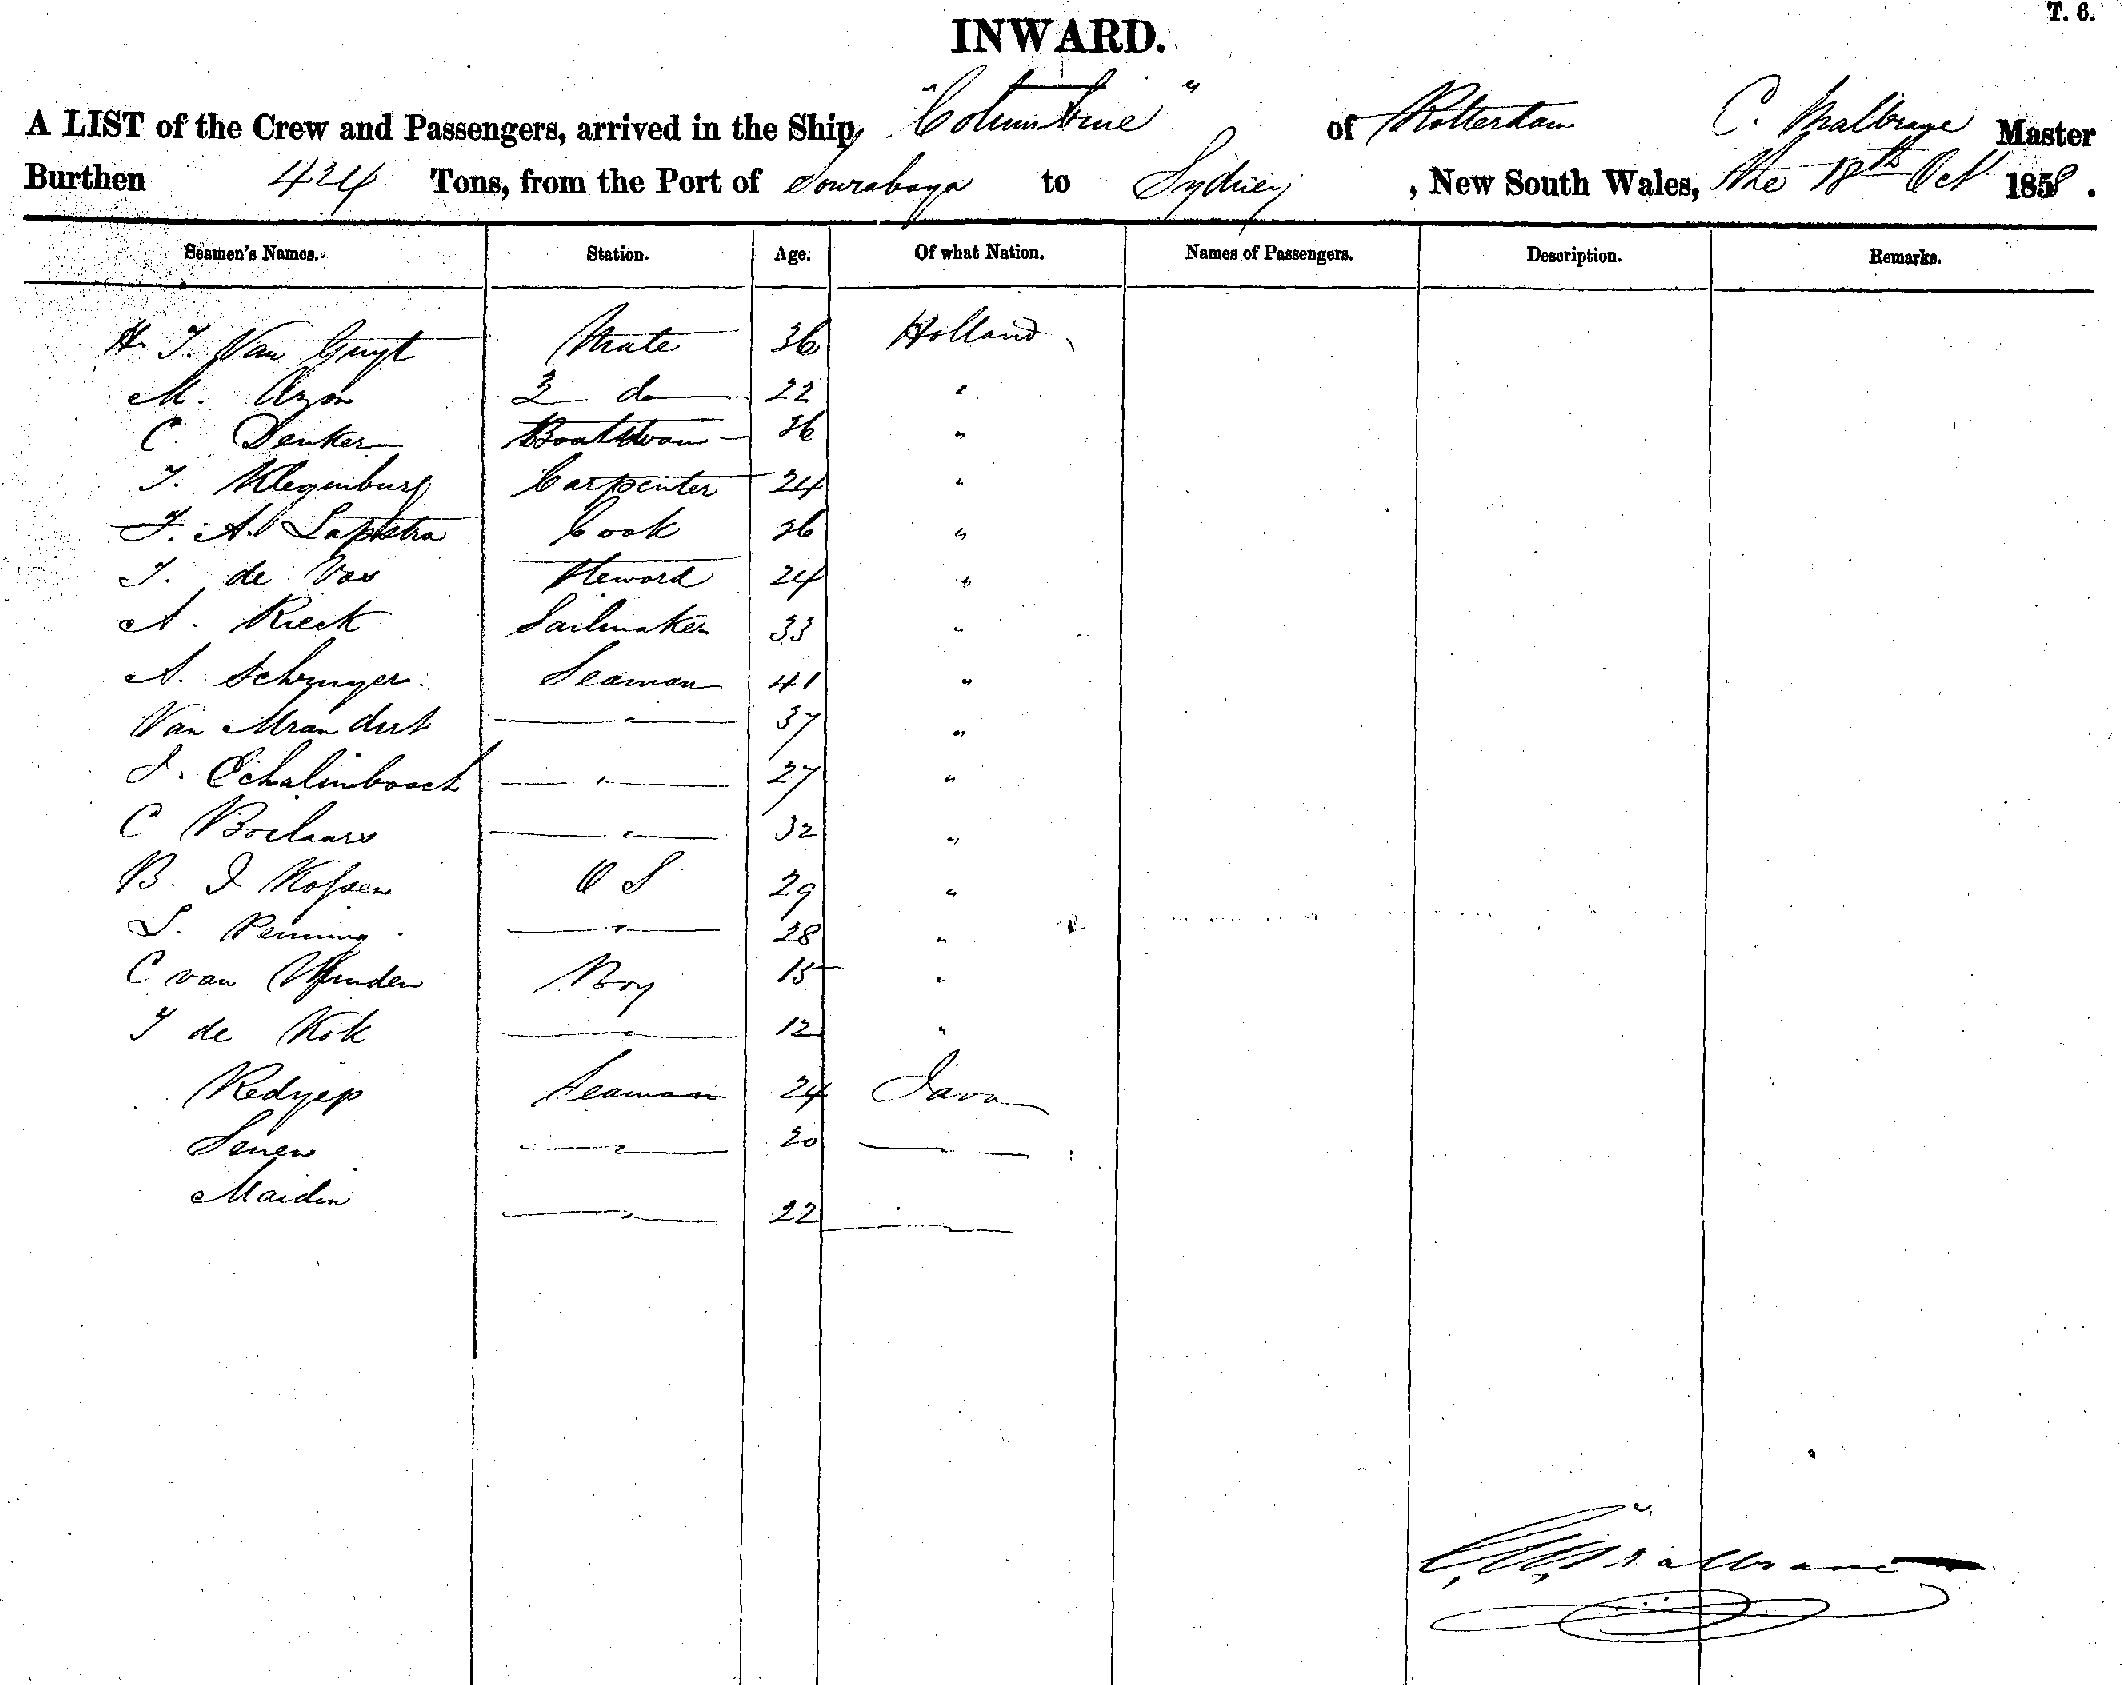 T. 6.
INWARD.
A LIST of the Crew and Passengers, arrived in the Ship, "Columbine" of Rotterdam C. Malbrane Master
Burthen 424 Tons, from the Port of Sourabaya to Sydney, New South Wales, the 18th Oct 1858.
Seamen's Names. Station. Age. Of what Nation. Names of Passengers. Description. Remarks.
H. J. Van Guyt Mate 36 Holland
M. Azon 2 do 22 "
C Denker Boatswain 36 "
J. Kleyenburg Carpenter 24 "
J. A. Lapstra Cook 26 "
J. de Vos Steward 24 "
A. Rieck Sailmaker 33 "
A. Schruyer Seaman 41 "
Van " 37 "
J. Echalinbosch " 27 "
C Boelaars " 32 "
B. J Kofsen O S 29 "
S. Penning " 28 "
C van Boy 15 "
J de Kok " 12 "
Redyep Seaman 24 Java
Senen " 20
Maidin " 22
Malbranc